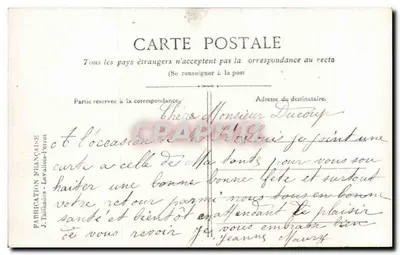 CARTE POSTALE
Tous les pays étrangers n'acceptent pas la correspondance au recto
(Se renseigner à la poste
Partie réservée à la correspondance.
Adresse du destinataire.
FABRICATION FRANÇAISE
J. Tallandos - Levallois-Perret
Chère Monsieur Ducoup
A l'occasion je joint une
carte a celle de Ma tante pour vous sou
haiter une bonne bonne fête et surtout
votre retour parmi nous tous en bonne
santé et bientôt en attendant le plaisir
de vous revoir je vous embrasse bien
Jeanne